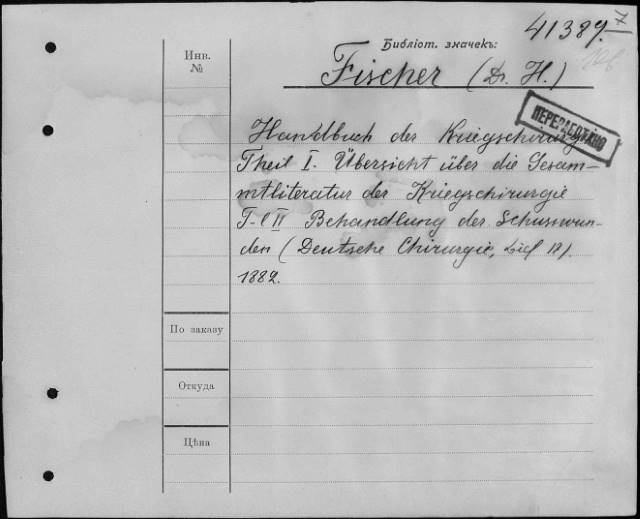 41389.
Библіот. значекъ:
Инв.
№
Fischer (Dr. H.)
ПЕРЕРАБОТАНО
Handbuch der Kriegschirurg
Theil I. Übersicht über die Gesam-
mtliteratur der Kriegschirurgie
T-l II Behandlung der Schusswun-
den (Deutsche Chirurgie, Lief
1882.
По заказу
Откуда
Цѣна